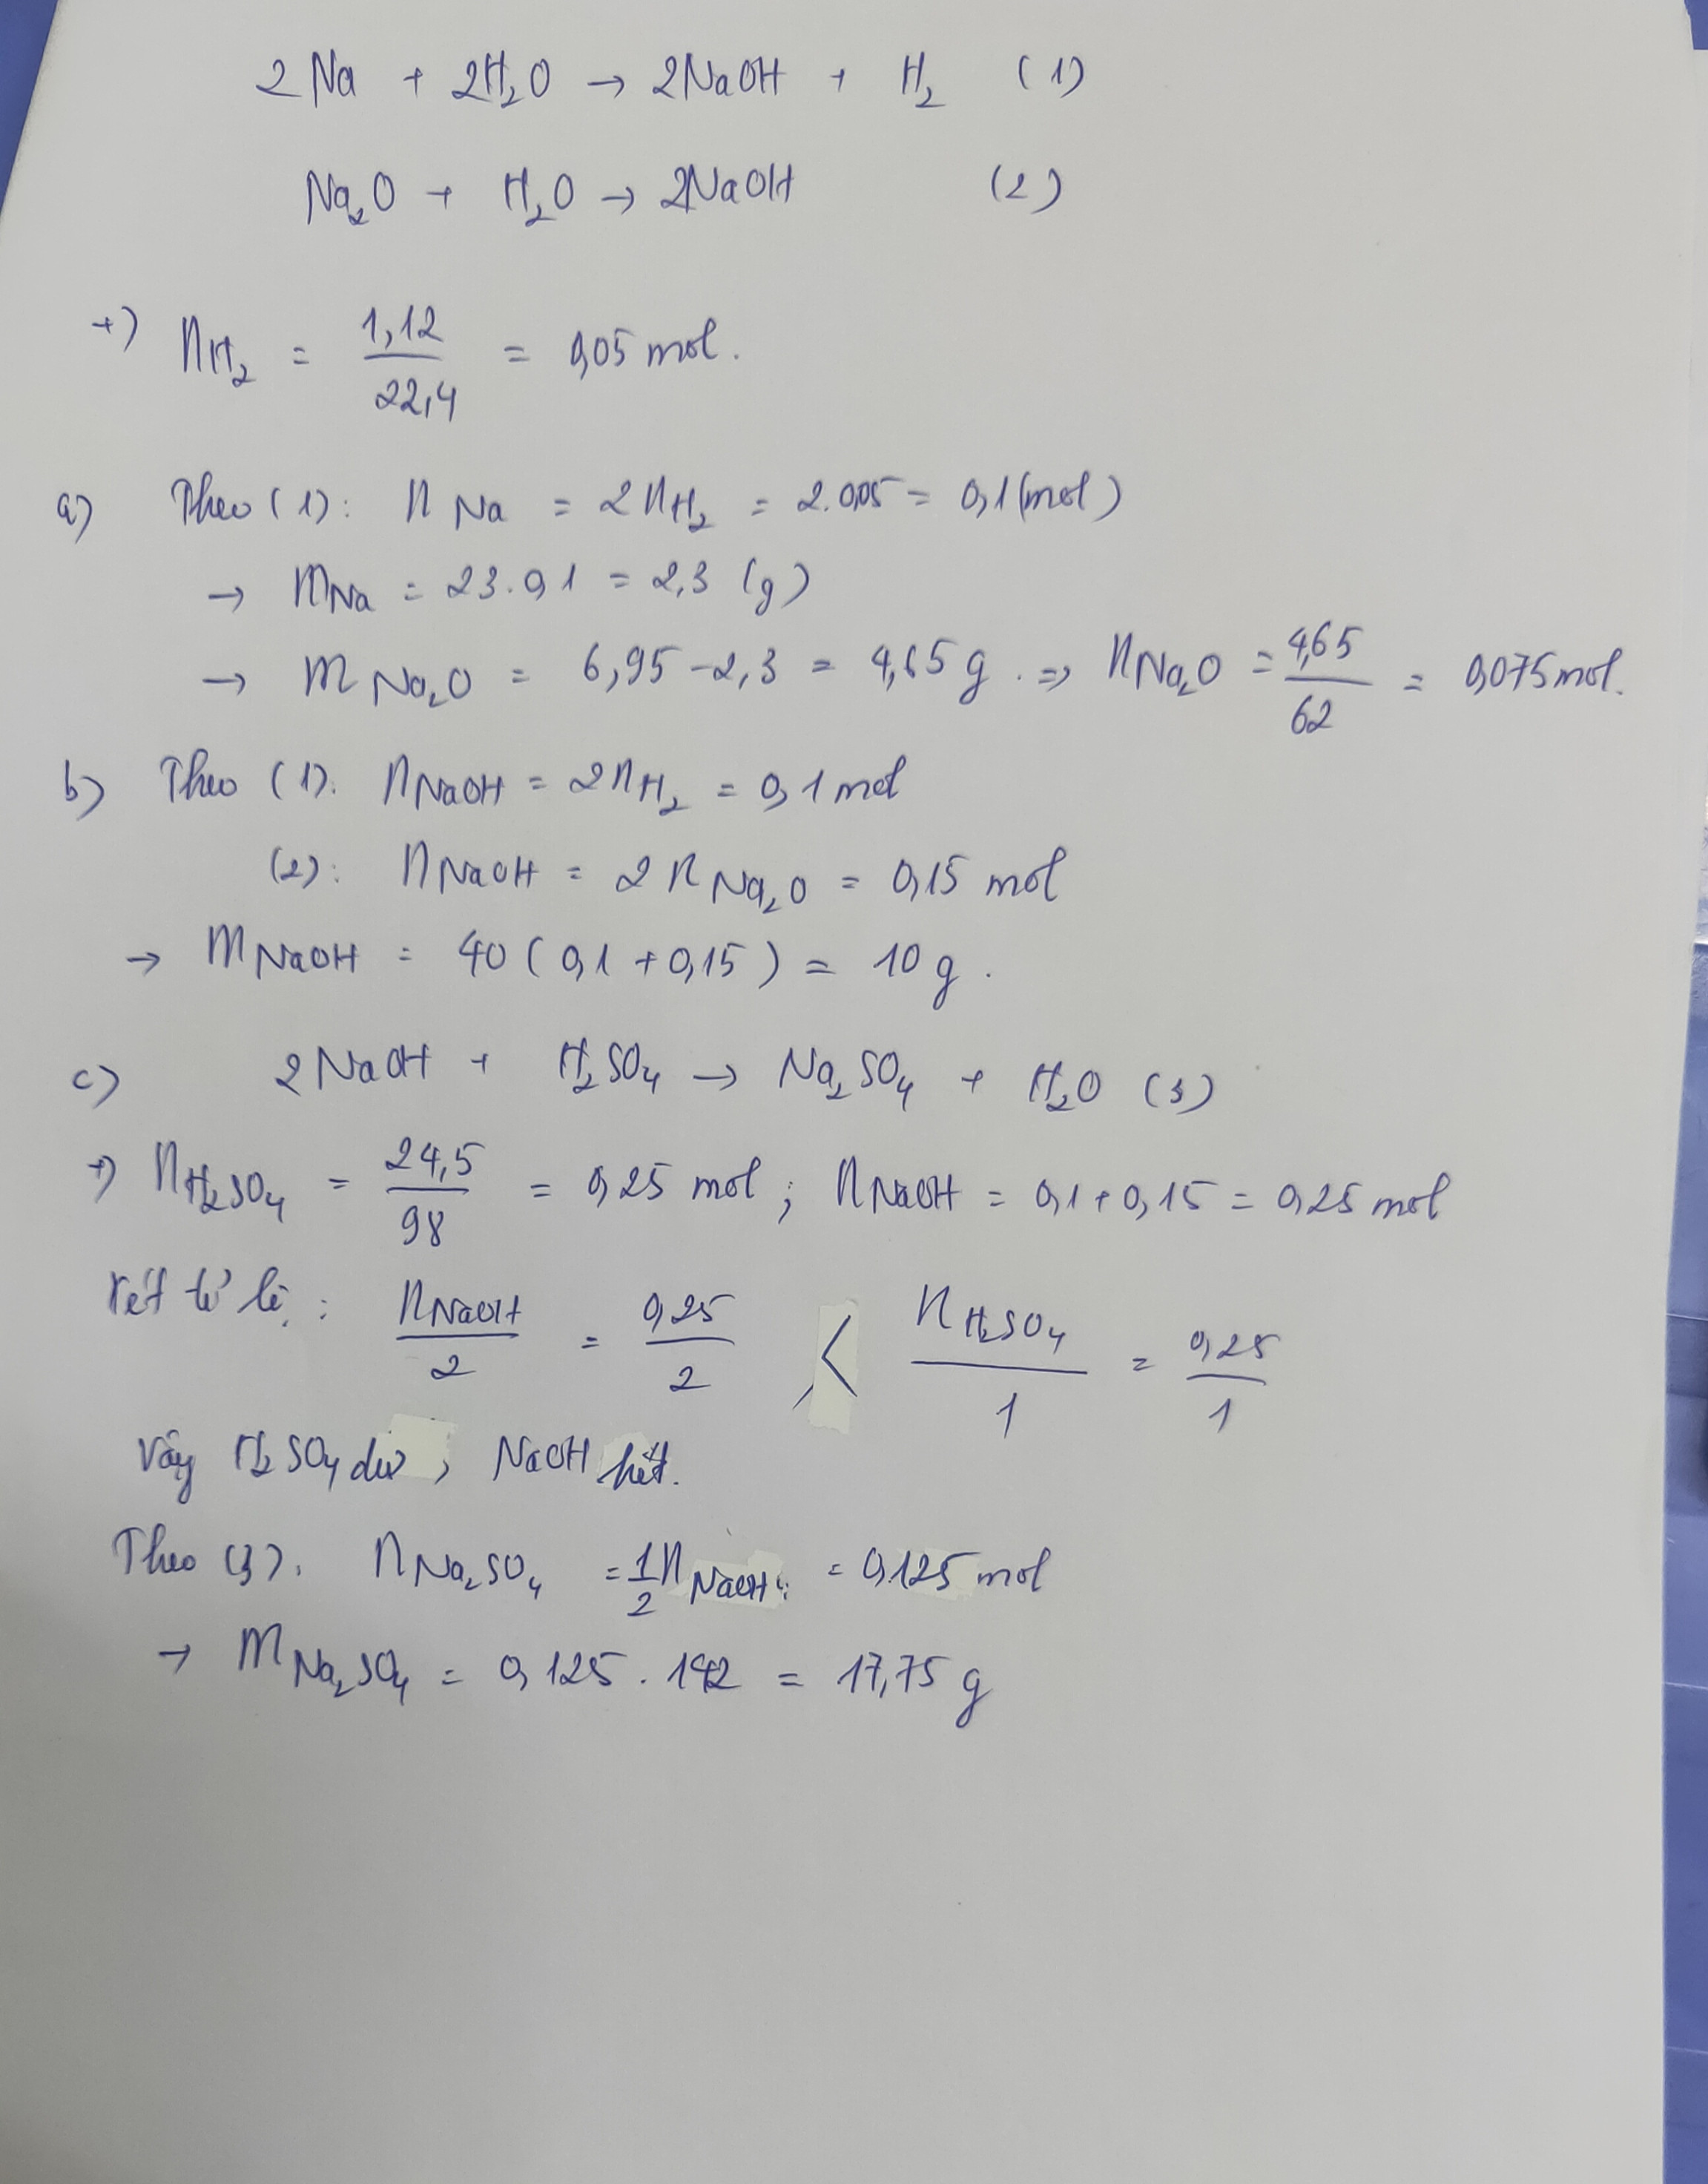 2Na + 2H₂O → 2NaOH + H₂ (1)
Na₂O + H₂O → 2NaOH (2)
+) nH₂ = 1,12/22,4 = 0,05 mol.
a) Theo (1): nNa = 2nH₂ = 2.0,05 = 0,1 (mol)
→ mNa = 23.0,1 = 2,3 (g)
→ mNa₂O = 6,95 - 2,3 = 4,65 g. => nNa₂O = 4,65/62 = 0,075 mol.
b) Theo (1): nNaOH = 2nH₂ = 0,1 mol
(2): nNaOH = 2nNa₂O = 0,15 mol
→ mNaOH = 40 (0,1 + 0,15) = 10 g.
c) 2NaOH + H₂SO₄ → Na₂SO₄ + H₂O (3)
+) nH₂SO₄ = 24,5/98 = 0,25 mol ; nNaOH = 0,1 + 0,15 = 0,25 mol
Xét tỉ lệ : nNaOH/2 = 0,25/2 < nH₂SO₄/1 = 0,25/1
Vậy H₂SO₄ dư , NaOH hết.
Theo (3): nNa₂SO₄ = 1/2 nNaOH = 0,125 mol
→ mNa₂SO₄ = 0,125 . 142 = 17,75 g